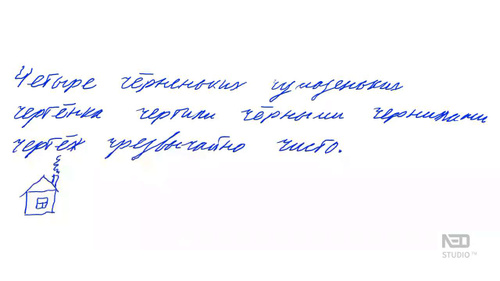 Четыре чёрненьких чумазеньких
чертёнка чертили чёрными чернилами
чертёж чрезвычайно чисто.
NEO
STUDIO™